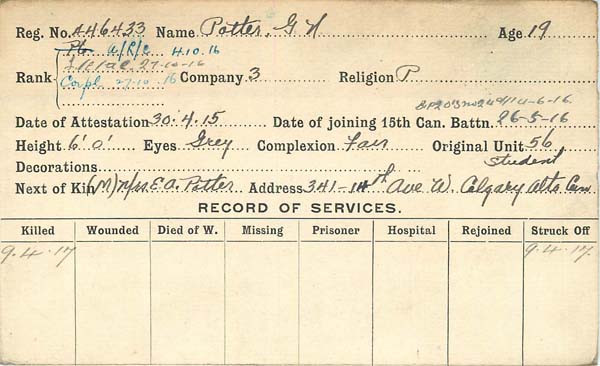 Reg. No. A46433 Name Potter, G. N Age 19
Pte a/R/c 4.10.16
27-10-16
Rank Corpl 27.10.16 Company 3 Religion P
14-6-16
Date of Attestation 30.4.15 Date of joining 15th Can. Battn. 26-5-16
Height 6' 0' Eyes Grey Complexion Fair Original Unit 56
Decorations Student
Next of Kin (M) Mrs E. A. Potter Address 341-14th Ave W. Calgary Alta Can
RECORD OF SERVICES.
Killed Wounded Died of W. Missing Prisoner Hospital Rejoined Struck Off
9.4.17 9.4.17